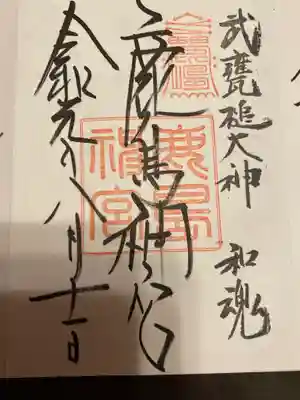 武甕槌大神 和魂
鹿島神宮
鹿島
神宮
八月十一日